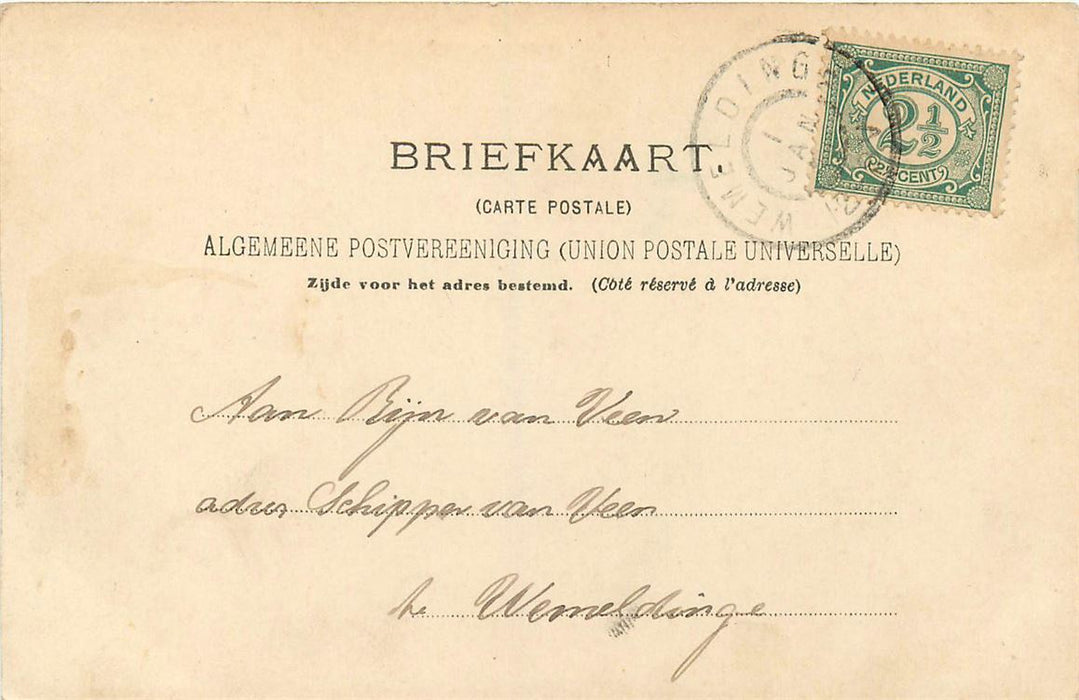 BRIEFKAART.
(CARTE POSTALE)
ALGEMEENE POSTVEREENIGING (UNION POSTALE UNIVERSELLE)
Zijde voor het adres bestemd. (Côté réservé à l'adresse)
WEMELDINGE
1 JAN
NEDERLAND
2½
2½ CENT
Aan Rijn van Veen
adres Schipper van Veen
te Wemeldinge